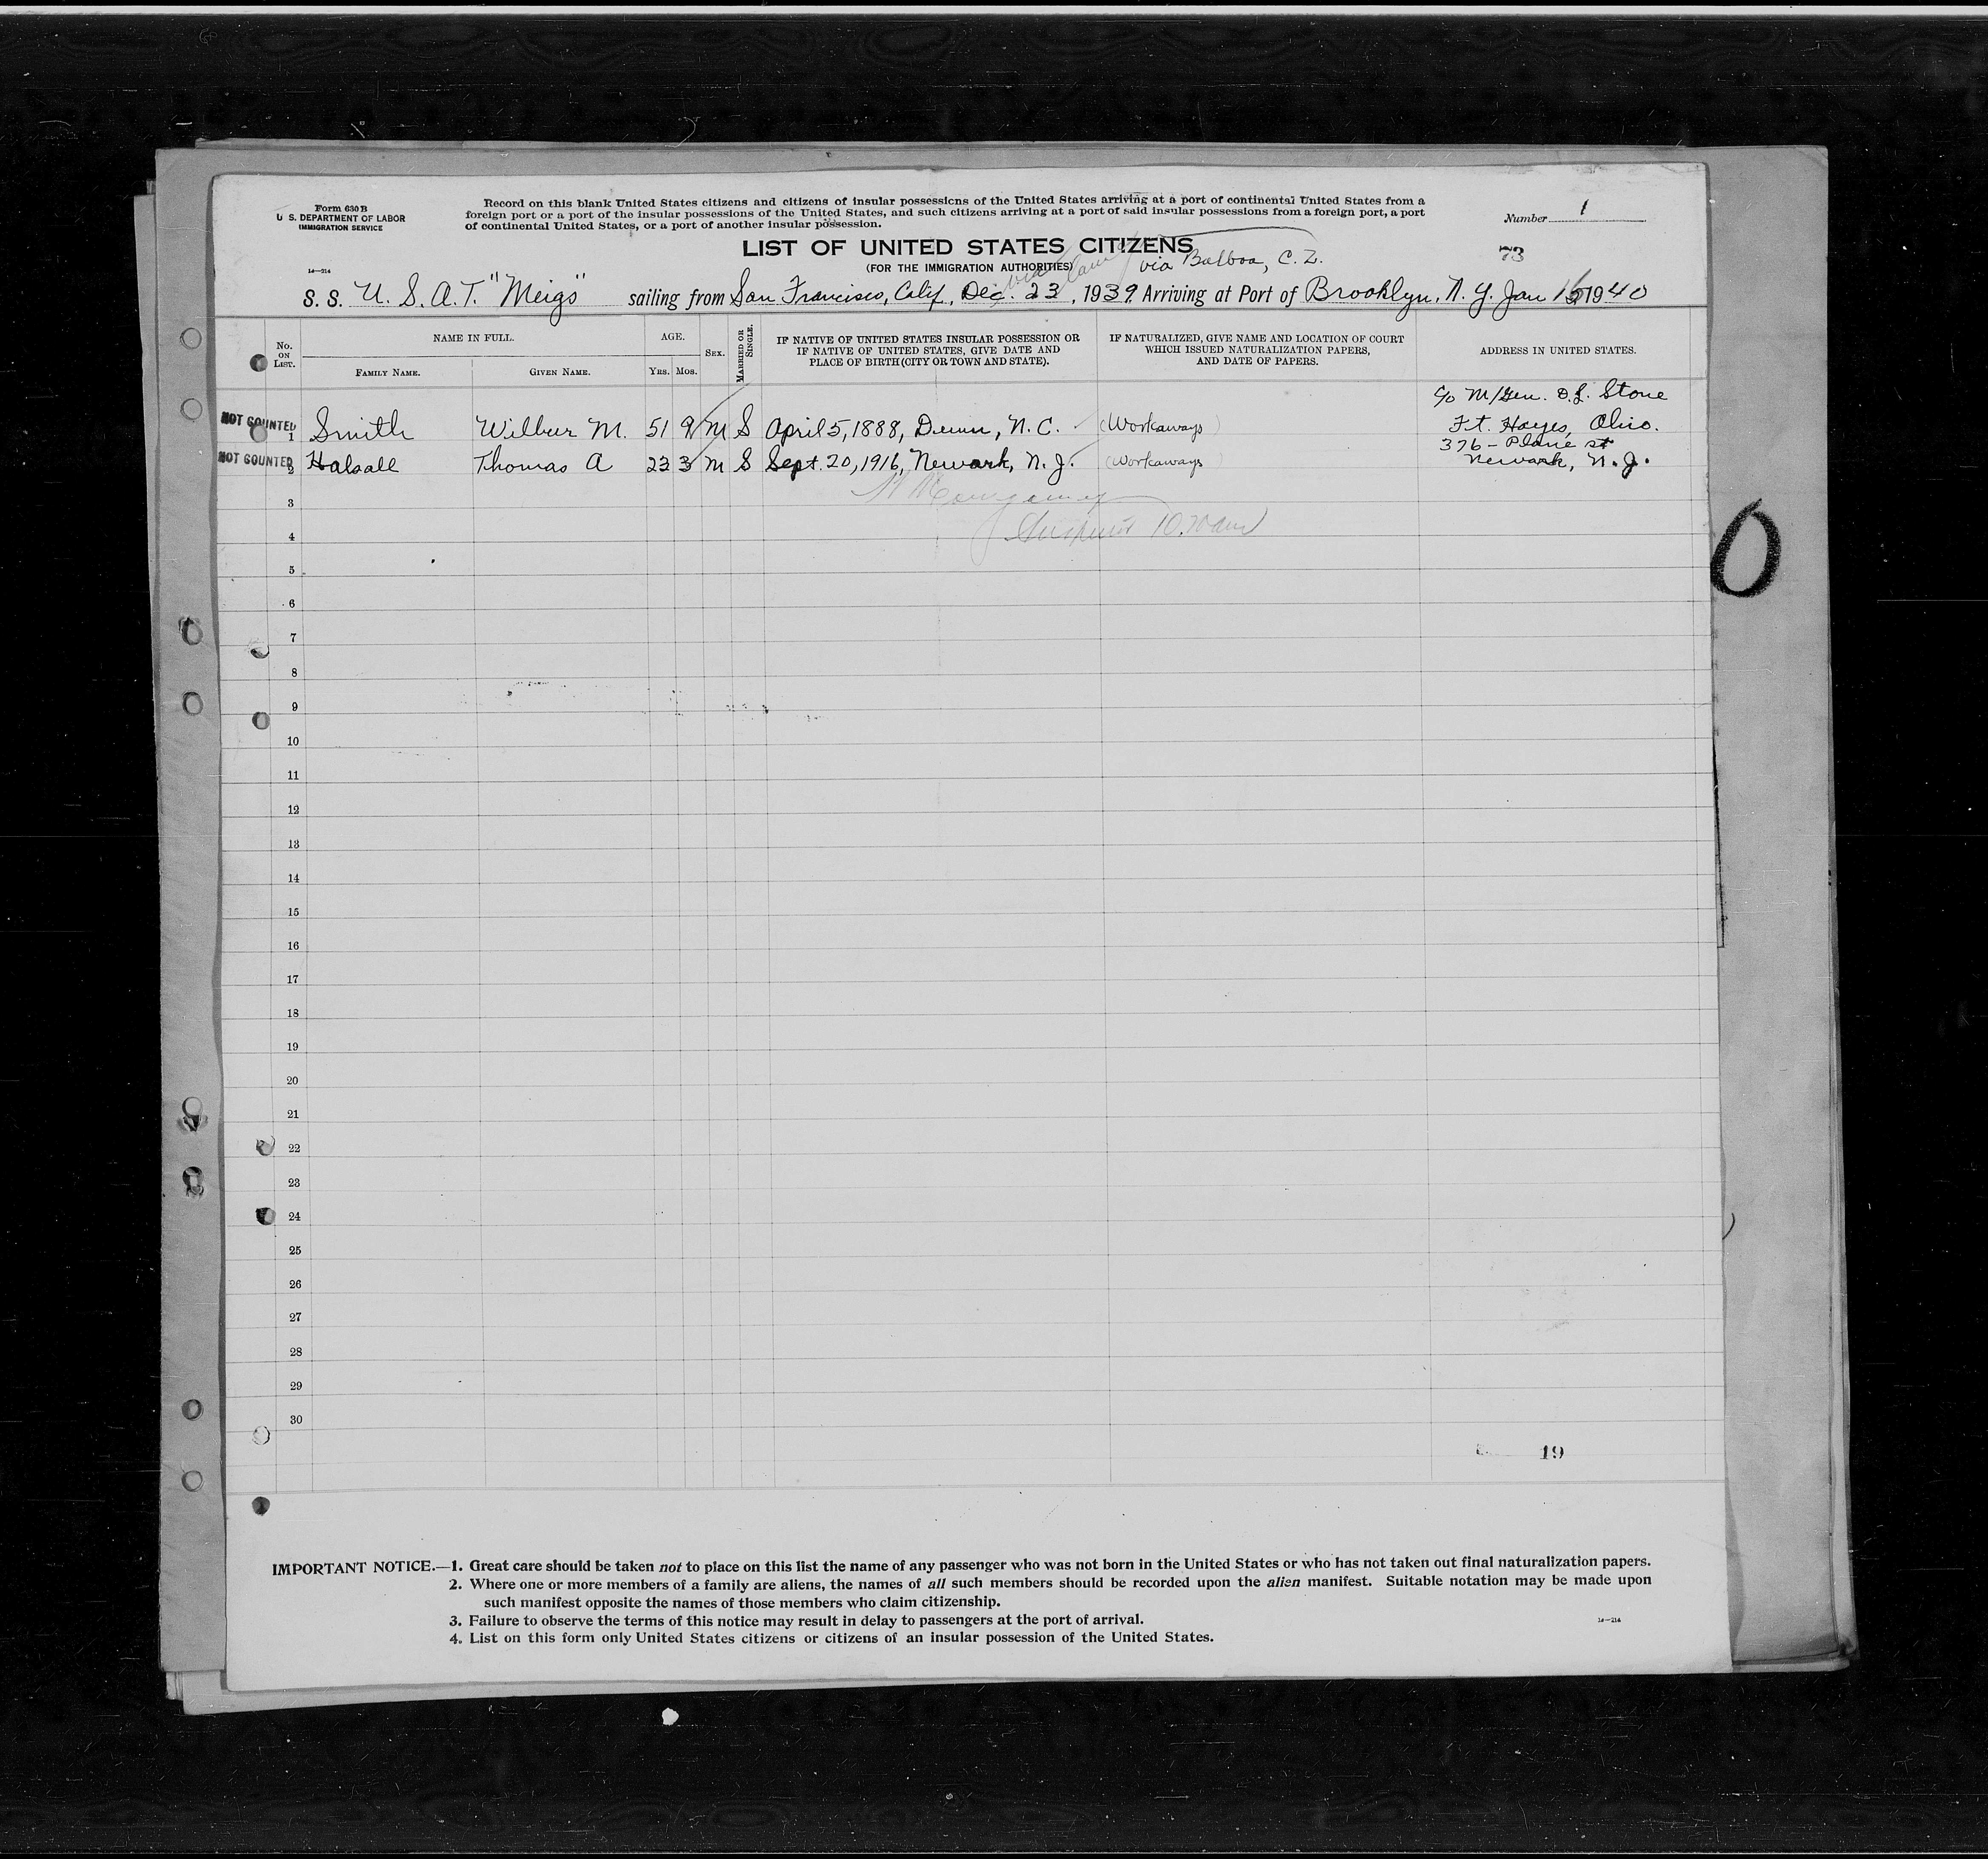 Form 630 B
U. S. DEPARTMENT OF LABOR
IMMIGRATION SERVICE
Record on this blank United States citizens and citizens of insular possessions of the United States arriving at a port of continental United States from a
foreign port or a port of the insular possessions of the United States, and such citizens arriving at a port of said insular possessions from a foreign port, a port
of continental United States, or a port of another insular possession.
Number 1
LIST OF UNITED STATES CITIZENS
73
(FOR THE IMMIGRATION AUTHORITIES)
via Balboa, C. Z.
14—214
S. S. U. S. A. T. "Meigs" sailing from San Francisco, Calif., Dec. 23, 1939. Arriving at Port of Brooklyn, N. Y. Jan 1940
No. ON LIST.
NAME IN FULL.
FAMILY NAME.
GIVEN NAME.
AGE.
YRS.
MOS.
SEX.
MARRIED OR SINGLE.
IF NATIVE OF UNITED STATES INSULAR POSSESSION OR
IF NATIVE OF UNITED STATES, GIVE DATE AND
PLACE OF BIRTH (CITY OR TOWN AND STATE).
IF NATURALIZED, GIVE NAME AND LOCATION OF COURT
WHICH ISSUED NATURALIZATION PAPERS,
AND DATE OF PAPERS.
ADDRESS IN UNITED STATES.
c/o M/Gen. D. L. Stone
NOT COUNTED 1 Smith Wilbur M. 51 9 M S April 5, 1888, Dunn, N. C. (Workaways) Ft. Hayes, Ohio.
376 - Plane st
NOT COUNTED 2 Halsall Thomas A 23 3 M S Sept. 20, 1916, Newark, N. J. (Workaways) Newark, N. J.
3
4 10.20am
5
6
7
8
9
10
11
12
13
14
15
16
17
18
19
20
21
22
23
24
25
26
27
28
29
30
19
0
IMPORTANT NOTICE.—1. Great care should be taken not to place on this list the name of any passenger who was not born in the United States or who has not taken out final naturalization papers.
2. Where one or more members of a family are aliens, the names of all such members should be recorded upon the alien manifest. Suitable notation may be made upon
such manifest opposite the names of those members who claim citizenship.
3. Failure to observe the terms of this notice may result in delay to passengers at the port of arrival.
14—214
4. List on this form only United States citizens or citizens of an insular possession of the United States.